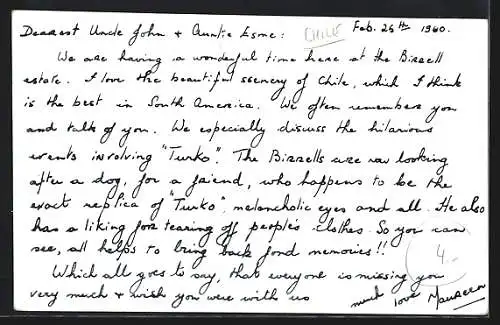 Dearest Uncle John + Auntie Esme: CHILE Feb. 25th 1960.
We are having a wonderful time here at the Birrell
estate. I love the beautiful scenery of Chile, which I think
is the best in South America. We often remember you
and talk of you. We especially discuss the hilarious
events involving "Turko". The Birrells are now looking
after a dog, for a friend, who happens to be the
exact replica of "Turko", melancholic eyes and all. He also
has a liking for tearing off people's clothes. So you can
see, all helps to bring back fond memories!!
4.-
Which all goes to say, that everyone is missing you
very much + wish you were with us
much love Maureen